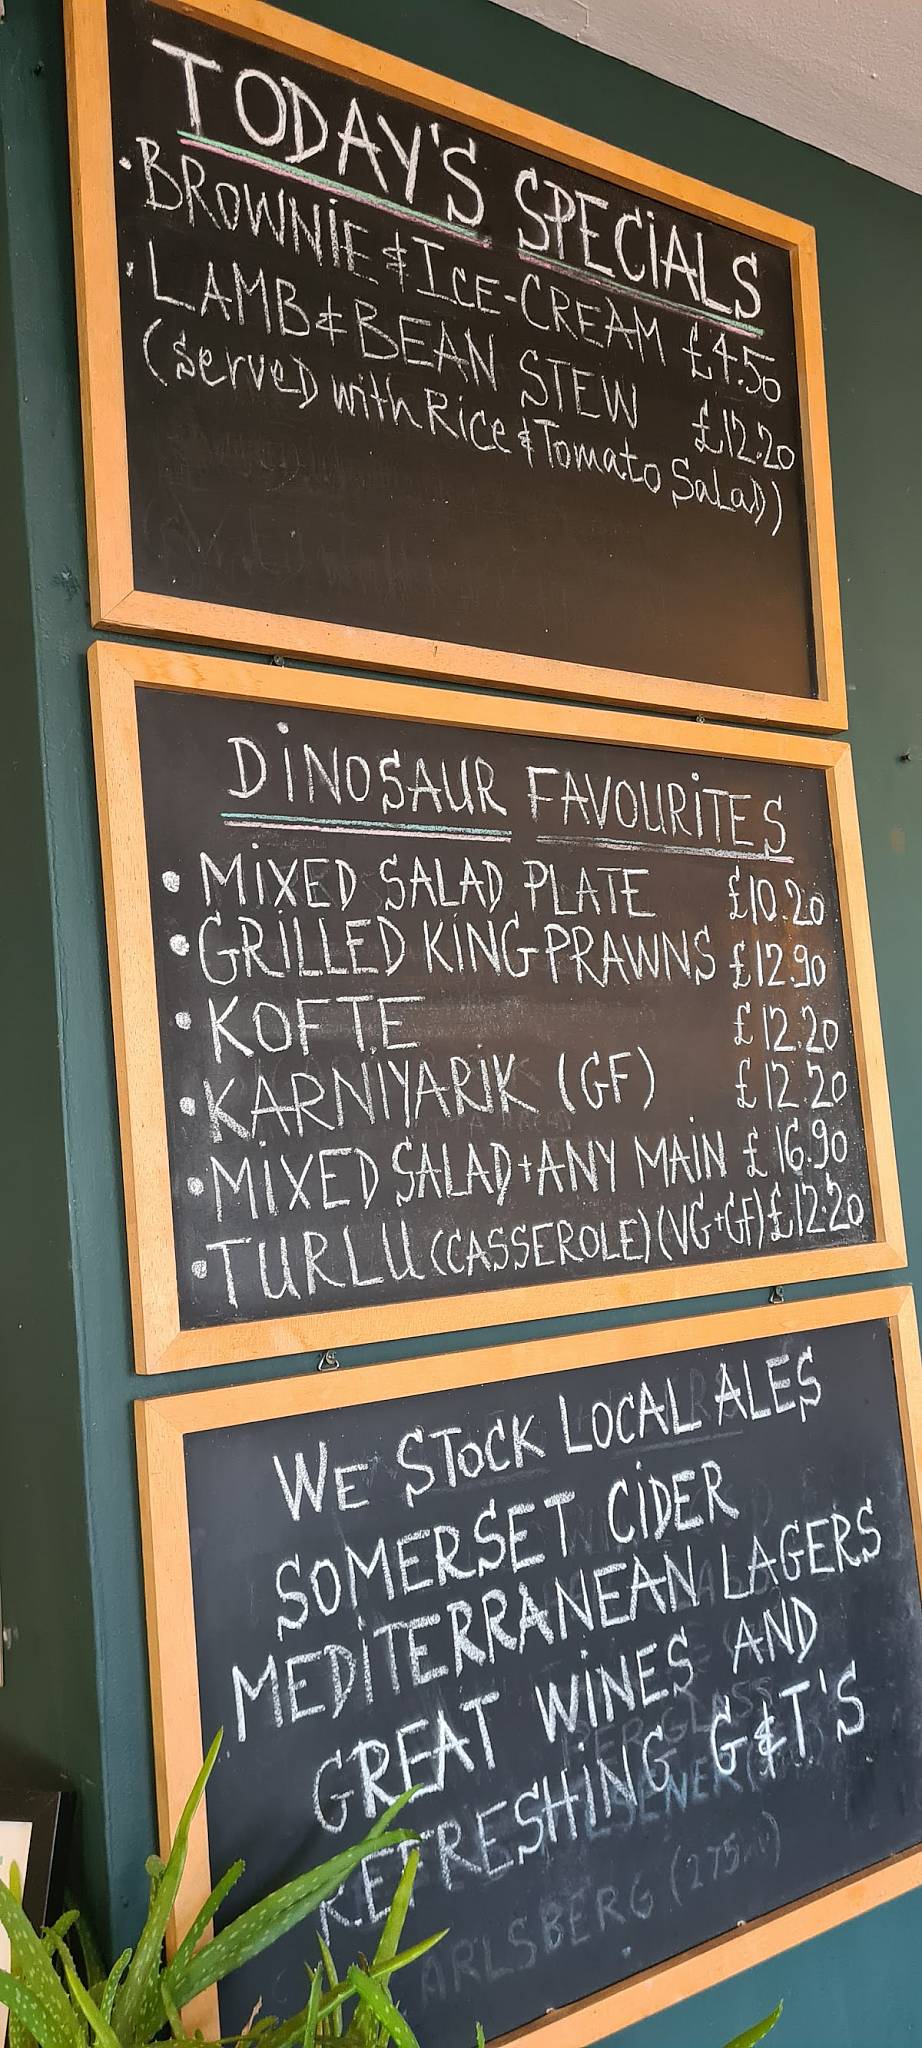 TODAY'S SPECIALS
• BROWNIE & ICE-CREAM £4.50
• LAMB & BEAN STEW £12.20
(Served with Rice & Tomato Salad)
DINOSAUR FAVOURITES
• MIXED SALAD PLATE £10.20
• GRILLED KING PRAWNS £12.90
• KOFTE £12.20
• KARNIYARIK (GF) £12.20
• MIXED SALAD + ANY MAIN £16.90
• TURLU (CASSEROLE) (VG+GF) £12.20
WE STOCK LOCAL ALES
SOMERSET CIDER
MEDITERRANEAN LAGERS
GREAT WINES AND
REFRESHING G&T'S
ARLSBERG (275ml)